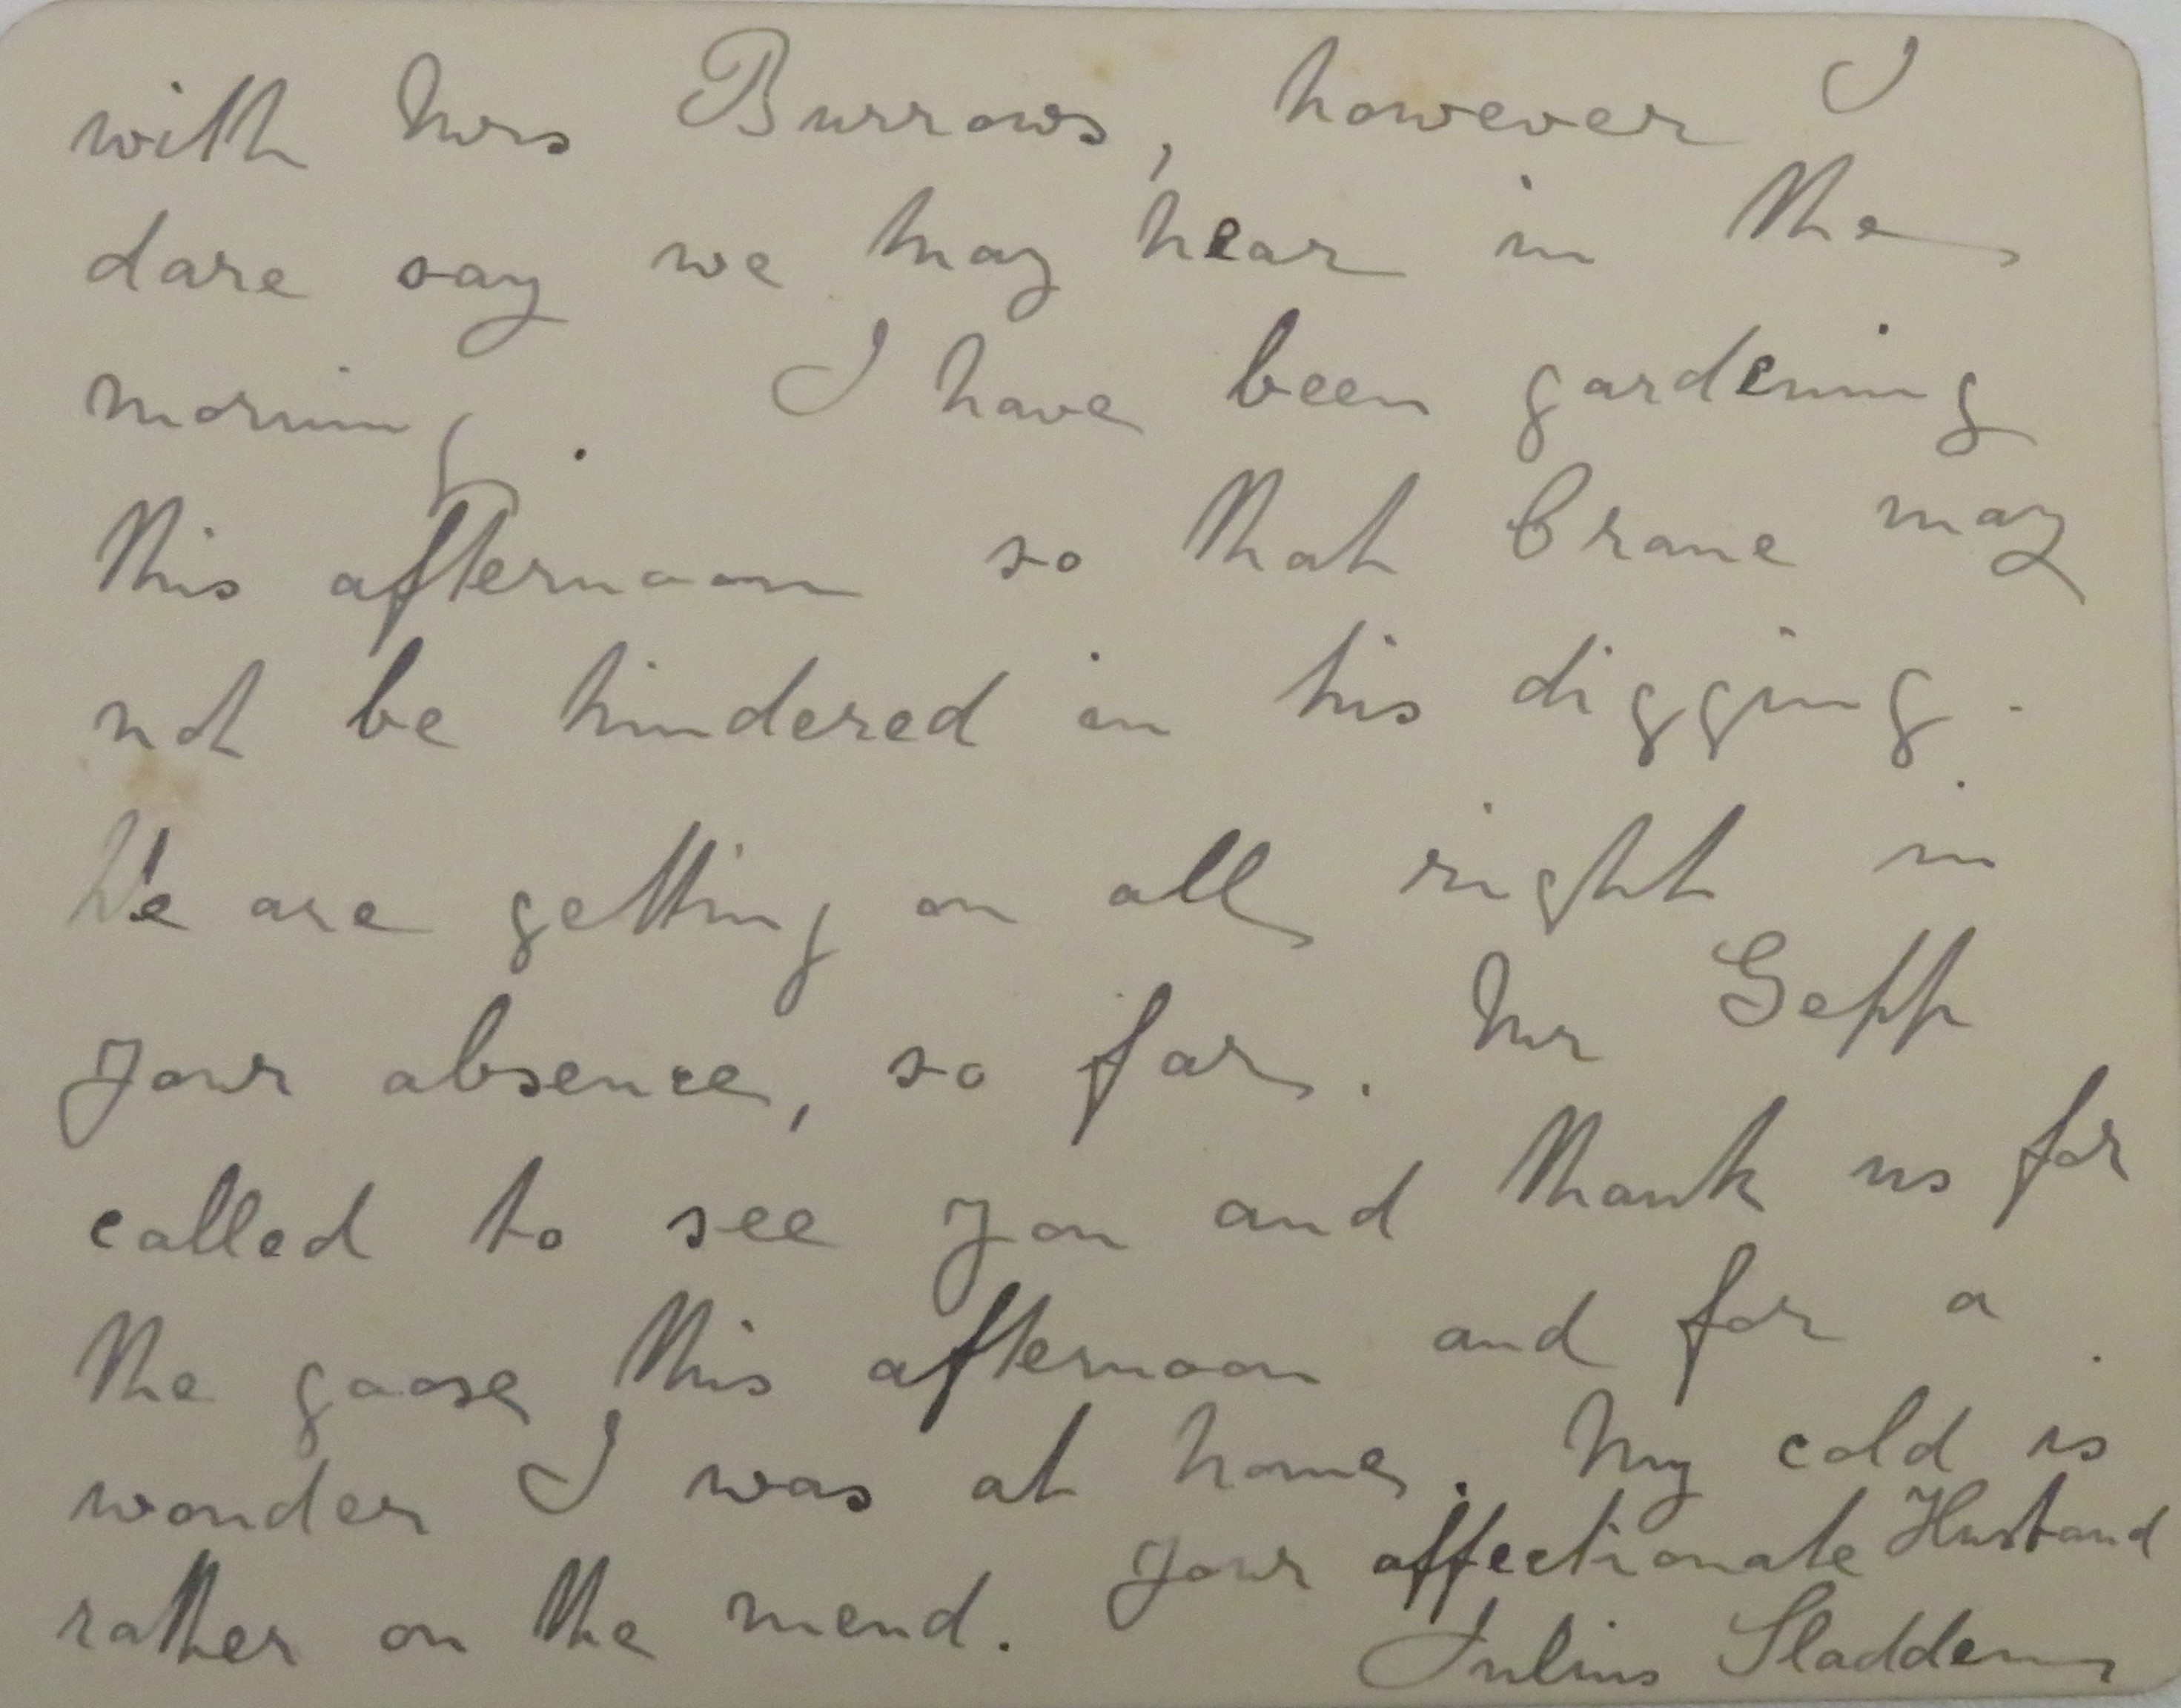 with Mrs Burrows, however I
dare say we may hear in the
morning. I have been gardening
this afternoon so that Crane may
not be hindered in his digging.
We are getting on all right in
your absence, so far. Mr Gepp
called to see you and thank us for
the goose this afternoon and for a
wonder I was at home. My cold is
rather on the mend. Your affectionate Husband
Julius Sladden